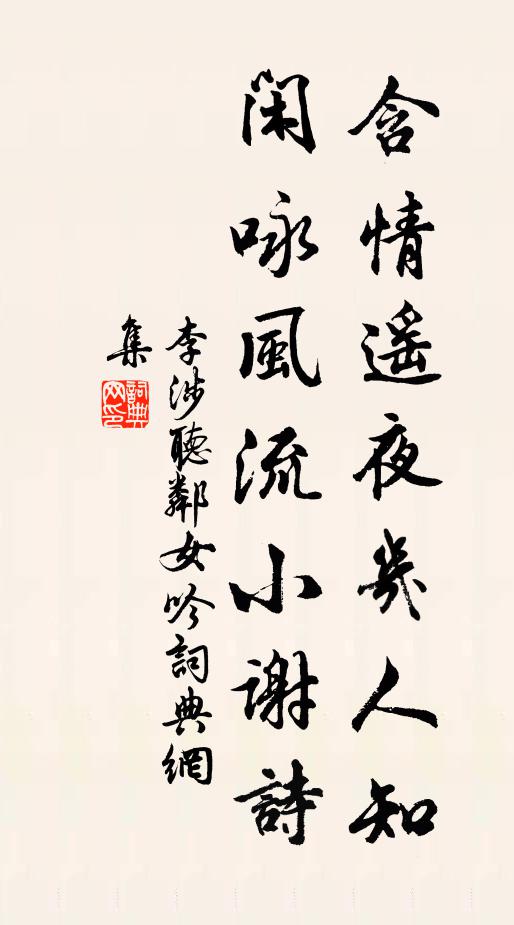 含情遥夜幾人知
閑咏風流小謝詩
李涉聽鄰女吟詞典網
集
詞典
网印